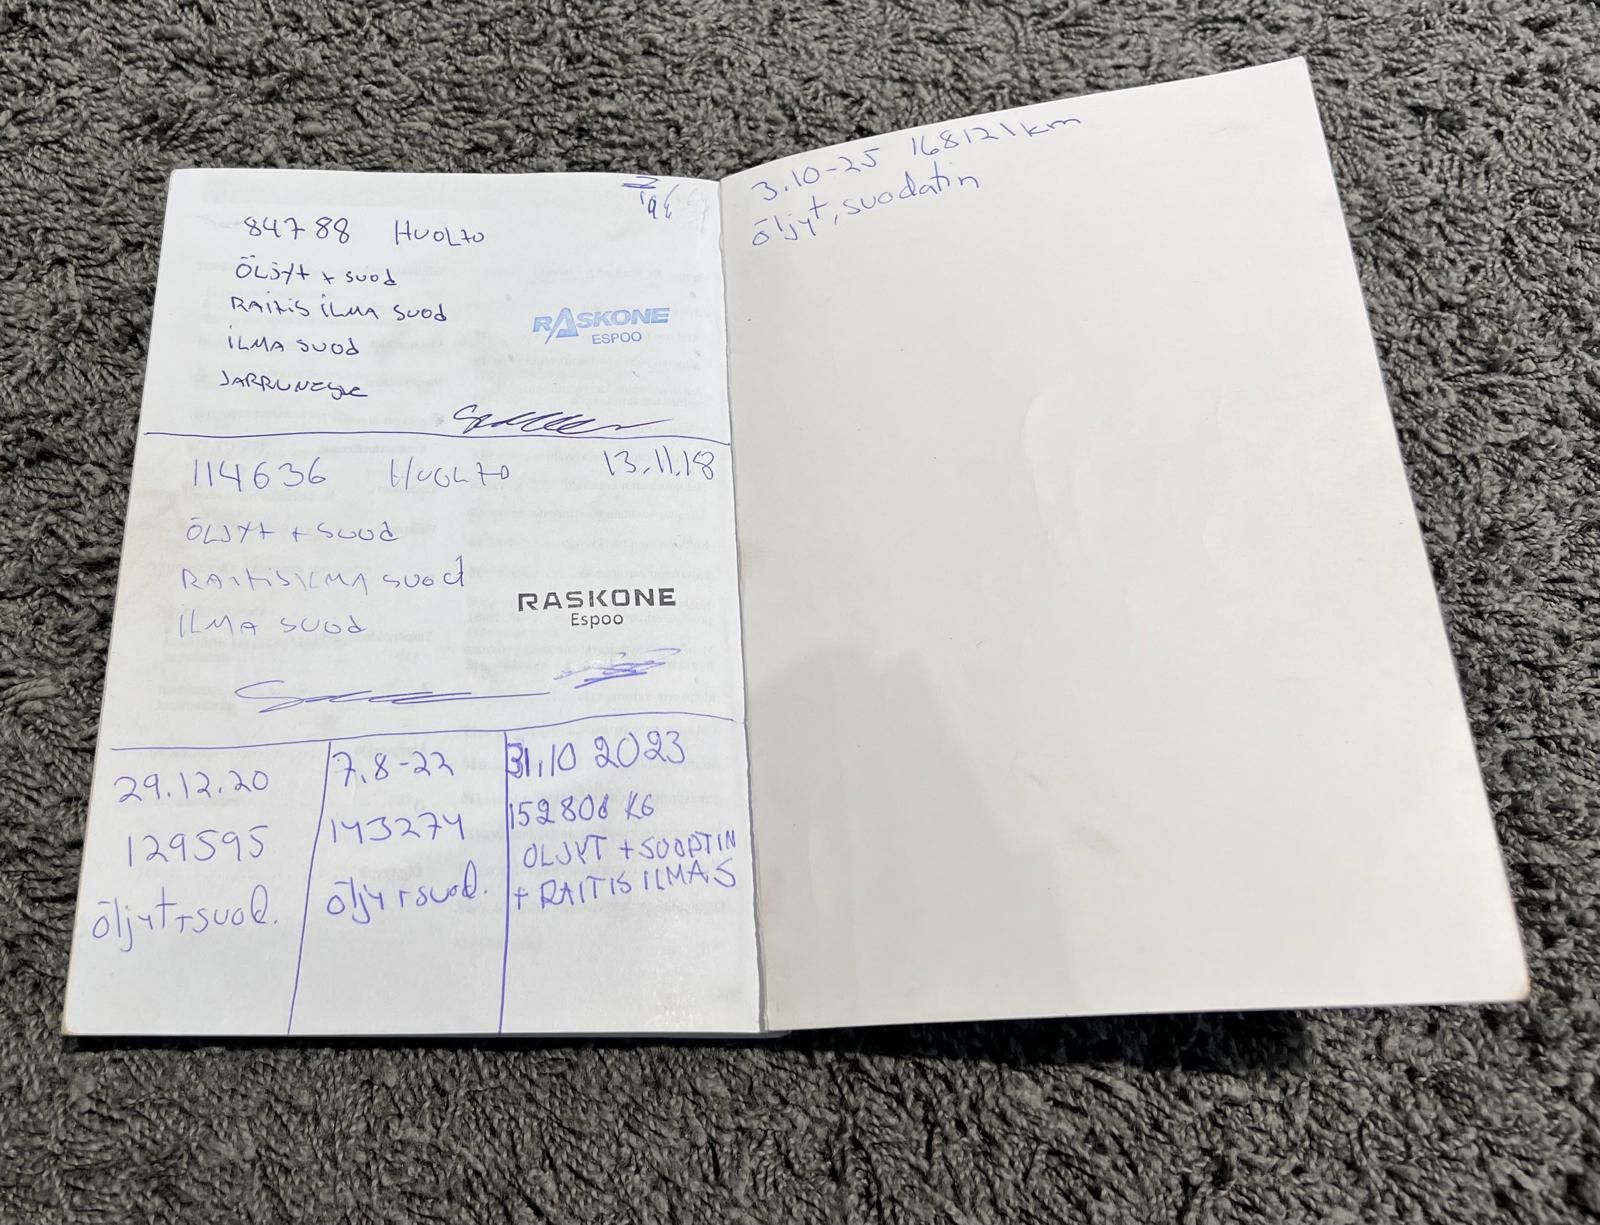 84788 HUOLTO
ÖLJYT + SUOD
RAITIS ILMA SUOD
ILMA SUOD
JARRUNESTE
RASKONE
ESPOO
114636 HUOLTO 13.11.18
ÖLJYT + SUOD
RAITISILMA SUOD
ILMA SUOD
RASKONE
Espoo
29.12.20
129595
öljyt+suod.
7.8-22
143274
öljy+suod.
31.10 2023
152808 KG
OLJYT + SUODTIN
+ RAITIS ILMAS
3.10-25 168121km
öljyt, suodatin